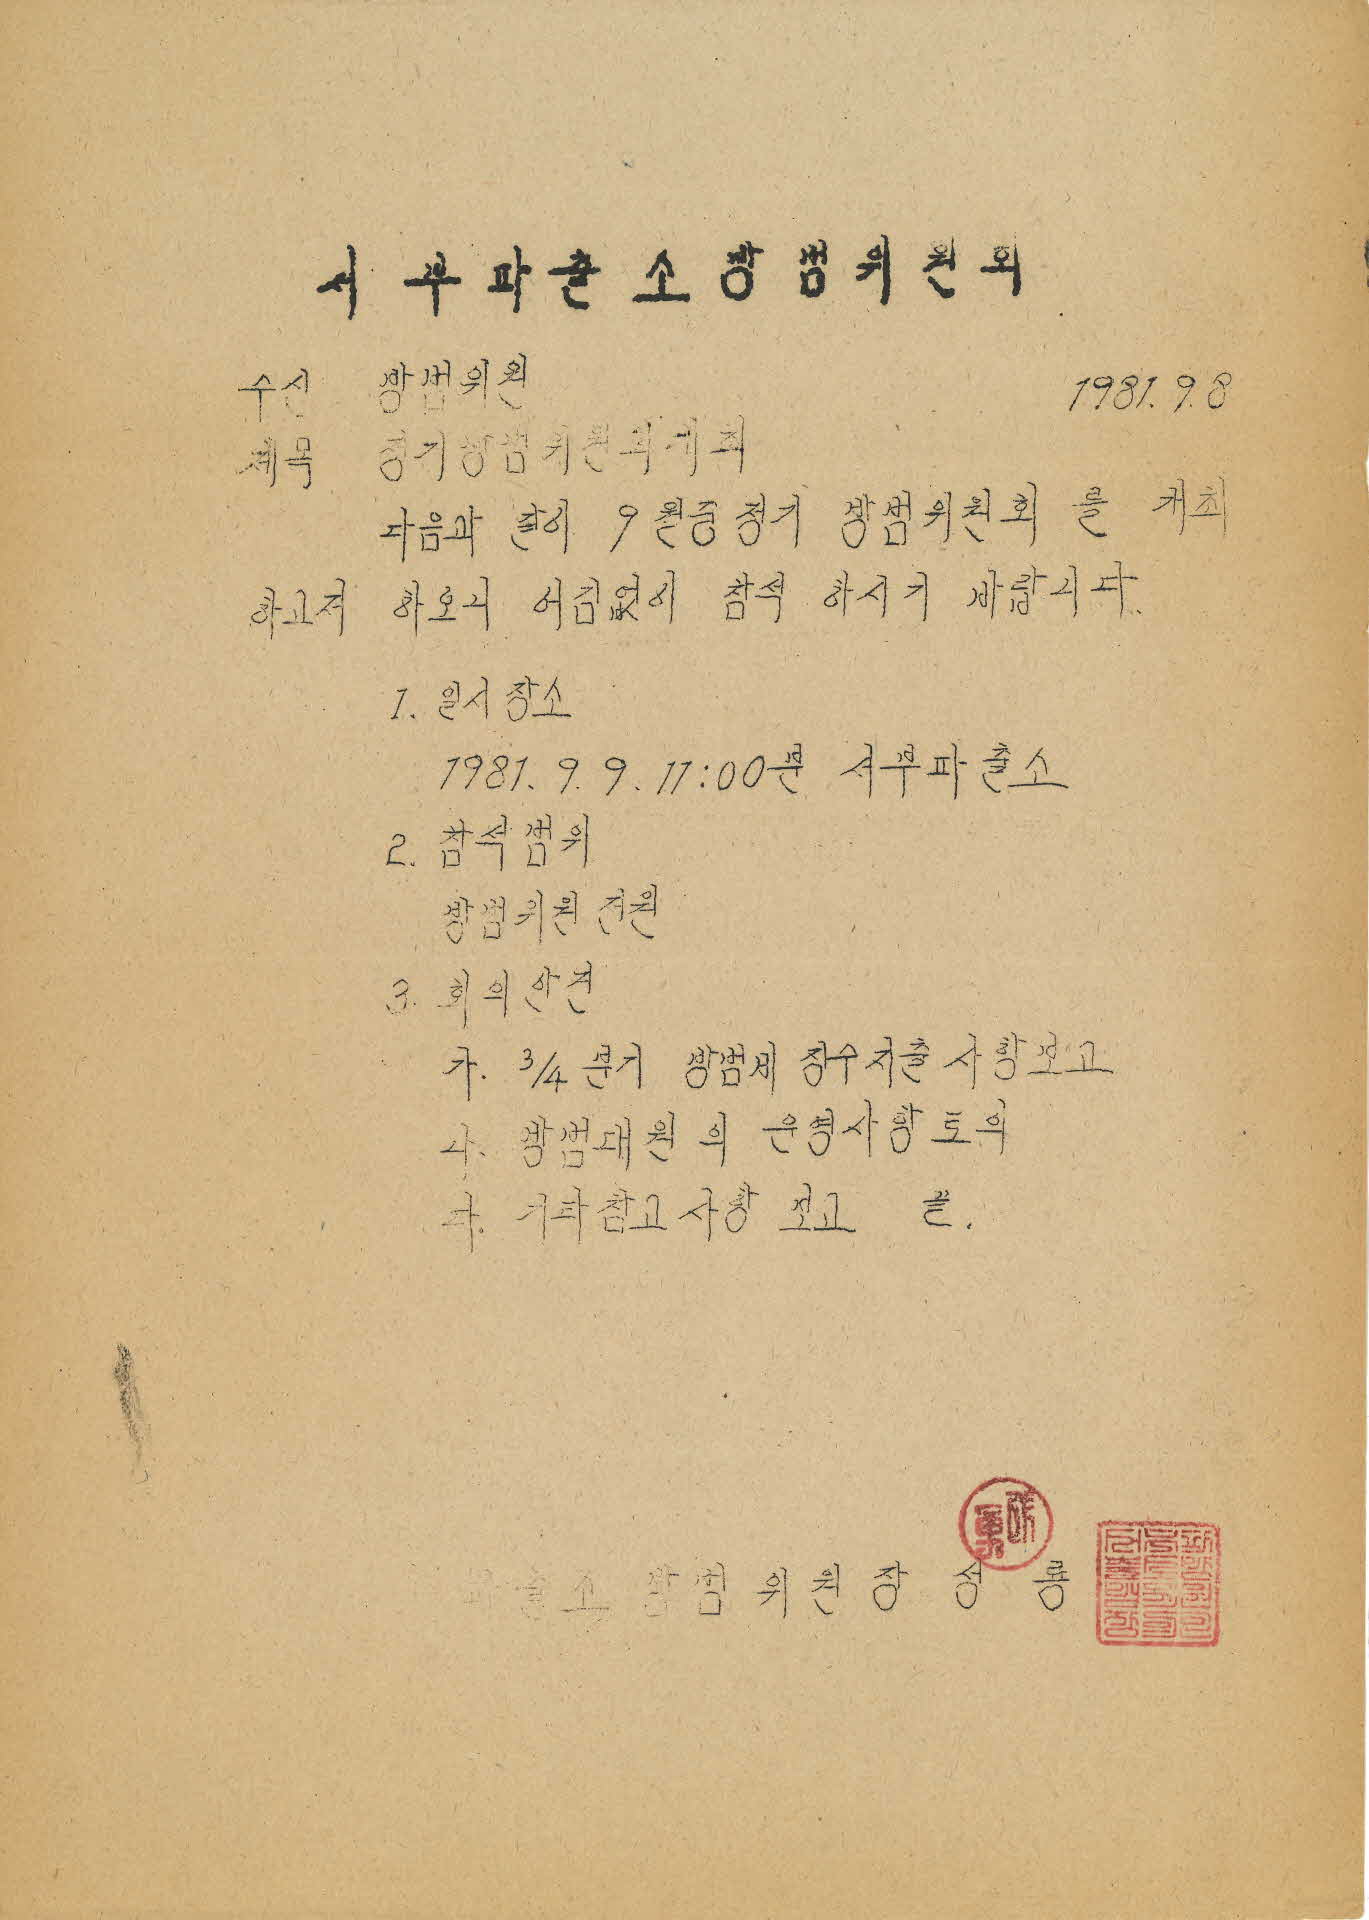 서부파출소방범위원회
수신 방범위원 1981. 9. 8
제목 정기방범위원회개최
다음과 같이 9월중정기 방범위원회 를 개최
하고져 하오니 어김없이 참석 하시기 바랍니다.
1. 일시장소
1981. 9. 9. 11:00분 서부파출소
2. 참석범위
방범위원 전원
3. 회의안건
가. 3/4 분기 방범비 징수지출 사항보고
나. 방범대원의 운영사항토의
다. 기타참고사항 보고 끝.
파출소 방범위원장 성 룡